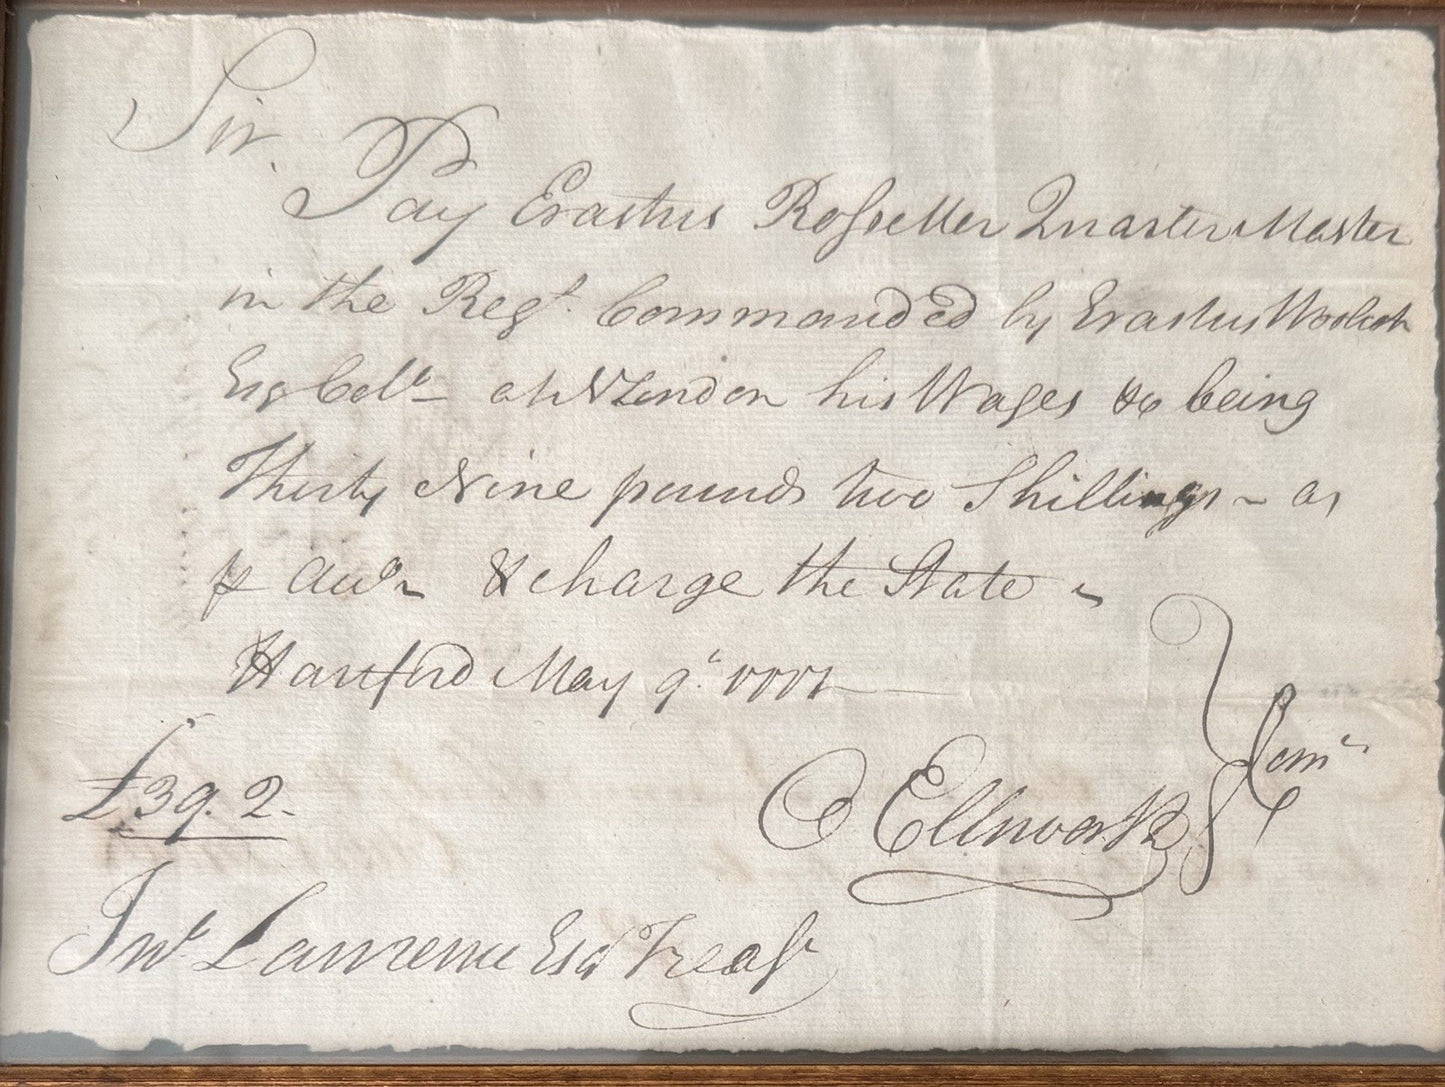 Sir.
Pay Erastus Rosseter Quarter Master
in the Regt. Commanded by Erastus Wolcott
Esq Colo at N London his Wages &c being
Thirty Nine pounds two Shillings - as
& charge the State
Hartford May 9th 1777
O Ellsworth Comtee
£39.2.
Jno Lawrence Esqr Treasr